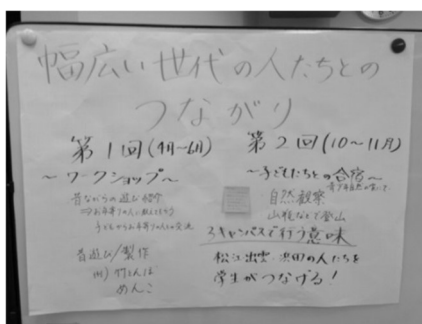 幅広い世代の人たちとの
つながり
第1回(4月~6月)
~ワークショップ~
昔ながらの遊び
子どもからお年寄りの人との交流
昔遊び/製作
例) 竹とんぼ
めんこ
第2回(10~11月)
~子どもたちとの合宿~
自然観察
山などで登山
3キャンパスで行う意味
松江 出雲 浜田の人たちを
学生がつなげる!